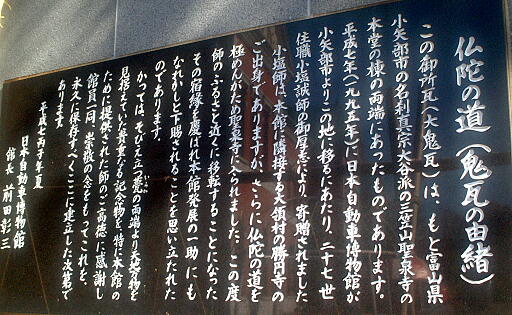 仏陀の道(鬼瓦の由緒)
この御所瓦(大鬼瓦)は、もと富山県
小矢部市の名刹真宗大谷派の三笠山聖泉寺の
本堂の棟の両端にあったものであります。
平成七年(一九九五年)に、日本自動車博物館が
小矢部市よりこの地に移るにあたり、二十七世
住職小塩誠師の御厚志により、寄贈されました
小塩師は、本館に隣接する天領村の勝円寺の
ご出身でありますが、さらに仏陀の道を
極めんがため聖泉寺に入られました。この度
師のふるさと近くに移転することになった
その宿縁を慶ばれ本館発展の一助にも
なれかしと下賜されることを思い立たれた
のであります。
かつては、そびえ立つ甍の両端より天地万物を
いらか
見据えていた貴重なる記念物を、特に本館の
ために提供された師のご高徳に感謝し
館員一同、崇敬の念をもってこれを、
永久に保存すべくここに建立した次第で
あります。
平成七丙子年夏
日本自動車博物館
館長 前田彰三